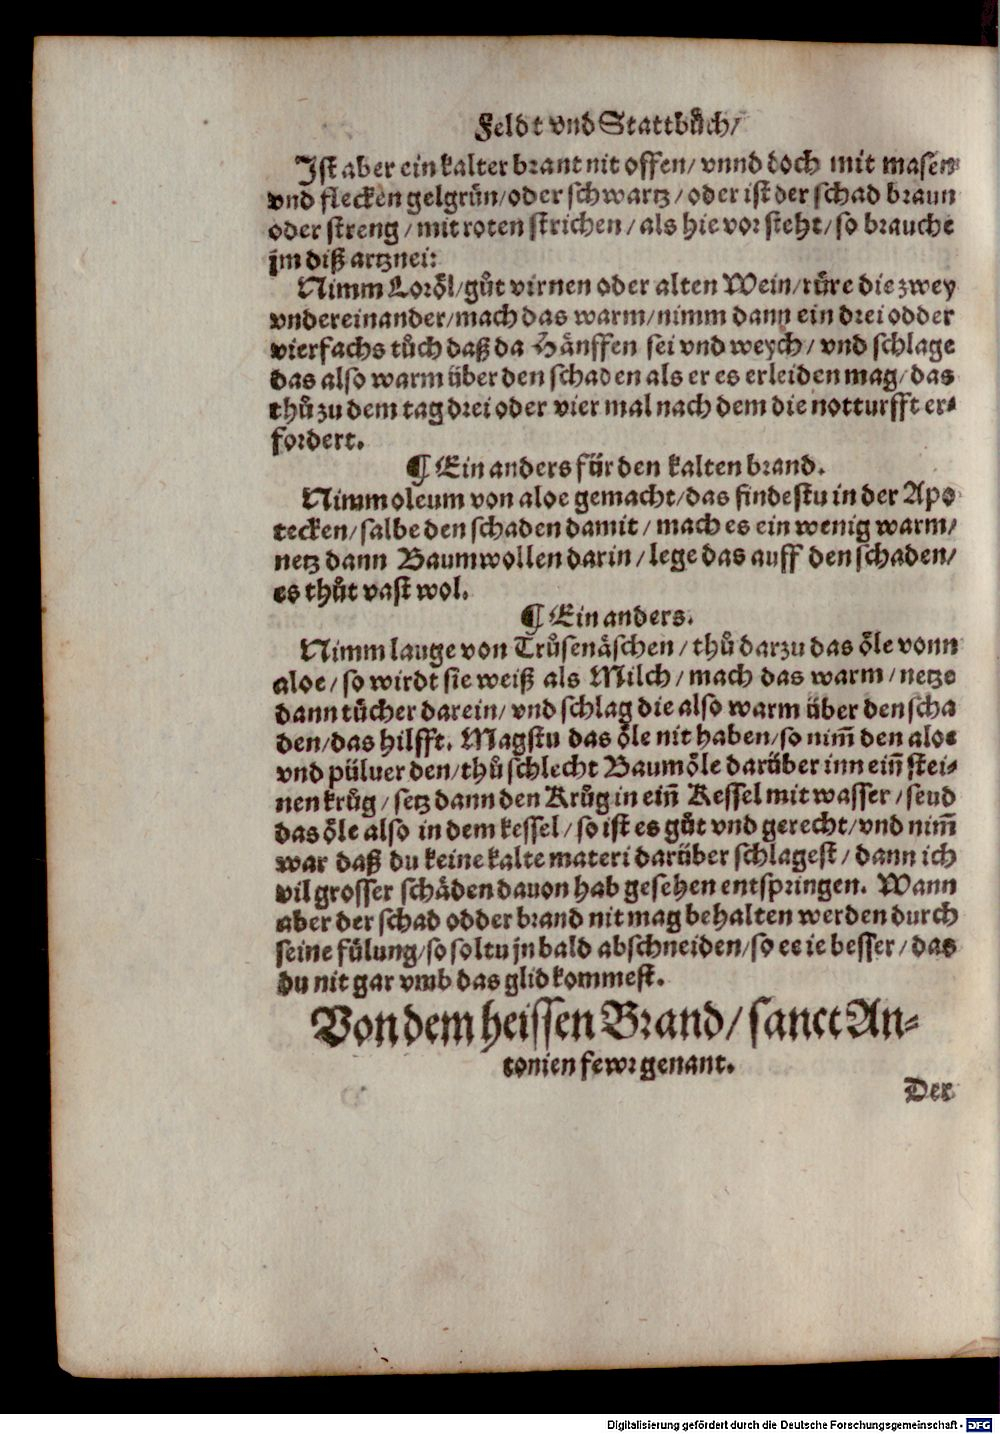 Feldt vnd Stattbůch/
Ist aber ein kalter brant nit offen/ vnnd doch mit masen
vnd flecken gelgrün/ oder schwartz/ oder ist der schad braun
oder streng/ mit roten strichen/ als hie vor steht/ so brauche
jm diß artznei:
Nimm Loröl/ gůt virnen oder alten Wein/ rüre die zwey
vndereinander/ mach das warm/ nimm dann ein drei odder
vierfachs tůch daß da Hänffen sei vnd weych/ vnd schlage
das also warm über den schaden als er es erleiden mag/ das
thů zu dem tag drei oder vier mal nach dem die notturfft er-
fordert.
¶ Ein anders für den kalten brand.
Nimm oleum von aloe gemacht/ das findestu in der Apo
tecken/ salbe den schaden damit/ mach es ein wenig warm/
netz dann Baumwollen darin/ lege das auff den schaden/
es thůt vast wol.
¶ Ein anders.
Nimm lauge von Trůsenäschen/ thů darzu das öle vonn
aloe/ so wirdt sie weiß als Milch/ mach das warm/ netze
dann tücher darein/ vnd schlag die also warm über den scha
den/ das hilfft. Magstu das öle nit haben/ so nim̃ den aloe
vnd püluer den/ thů schlecht Baumöle darüber inn ein̄ stei-
nen krůg/ setz dann den Krůg in ein̄ Kessel mit wasser/ seud
das öle also in dem kessel/ so ist es gůt vnd gerecht/ vnd nim̃
war daß du keine kalte materi darüber schlagest/ dann ich
vil grosser schäden dauon hab gesehen entspringen. Wann
aber der schad odder brand nit mag behalten werden durch
seine fülung/ so soltu jn bald abschneiden/ so ee ie besser/ das
du nit gar vmb das glid kommest.
Von dem heissen Brand/ sanct An-
tonien fewr genant.
Der
Digitalisierung gefördert durch die Deutsche Forschungsgemeinschaft - DFG